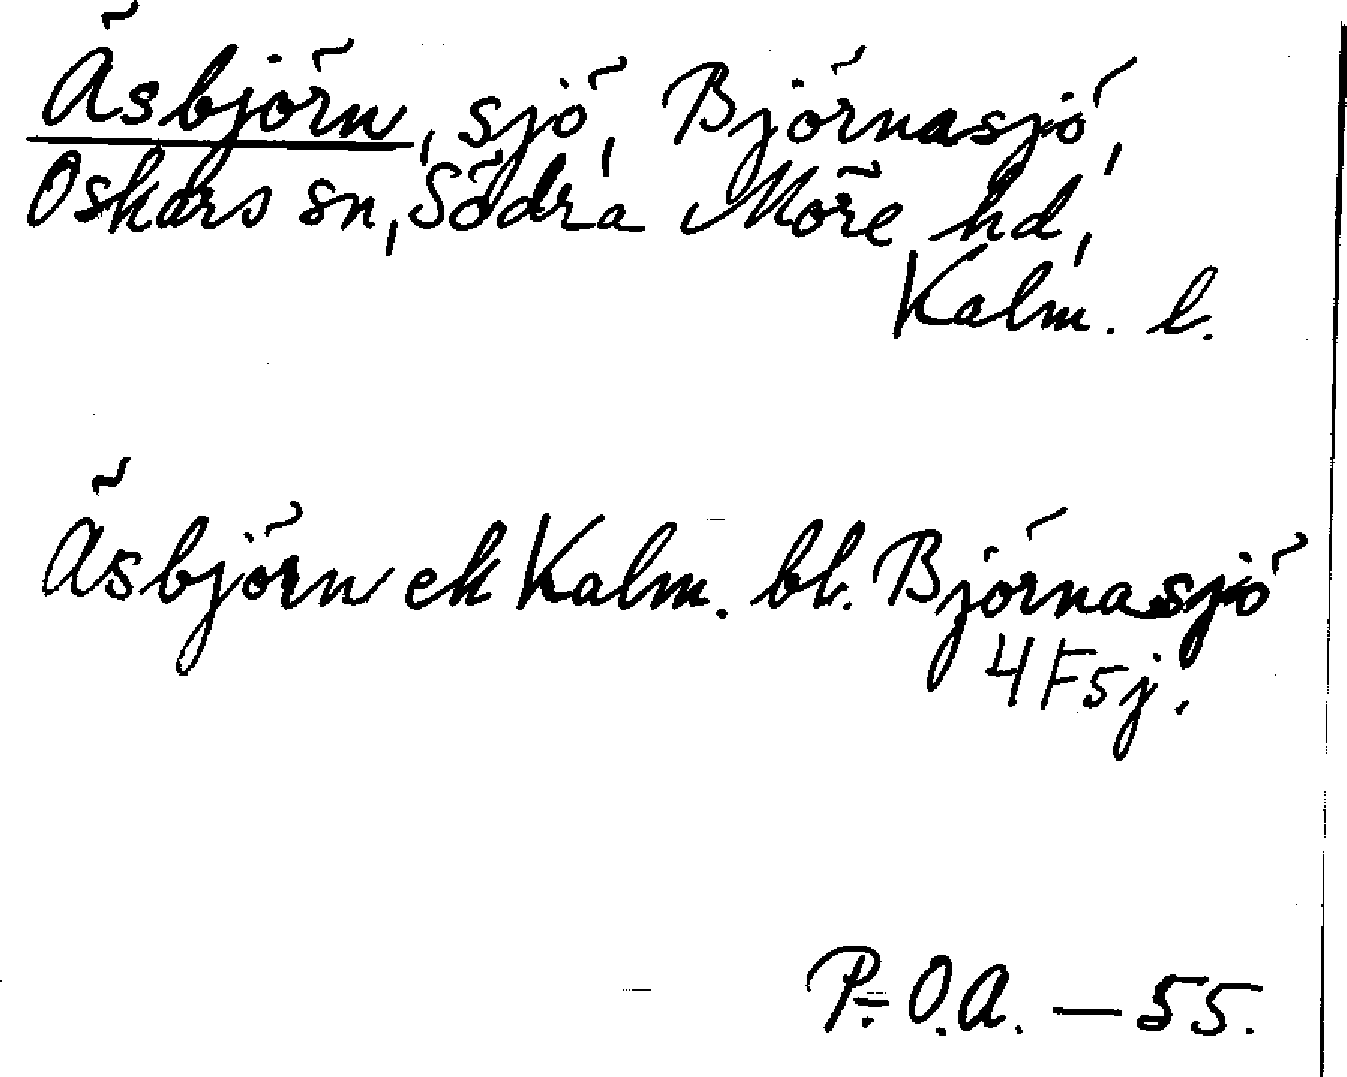 Åsbjörn, sjö, Björnasjö,
Oskars sn, Södra Möre hd,
Kalm. l.
Åsbjörn ek Kalm. bl. Björnasjö
4 F sj.
P.-O.A. — 55.